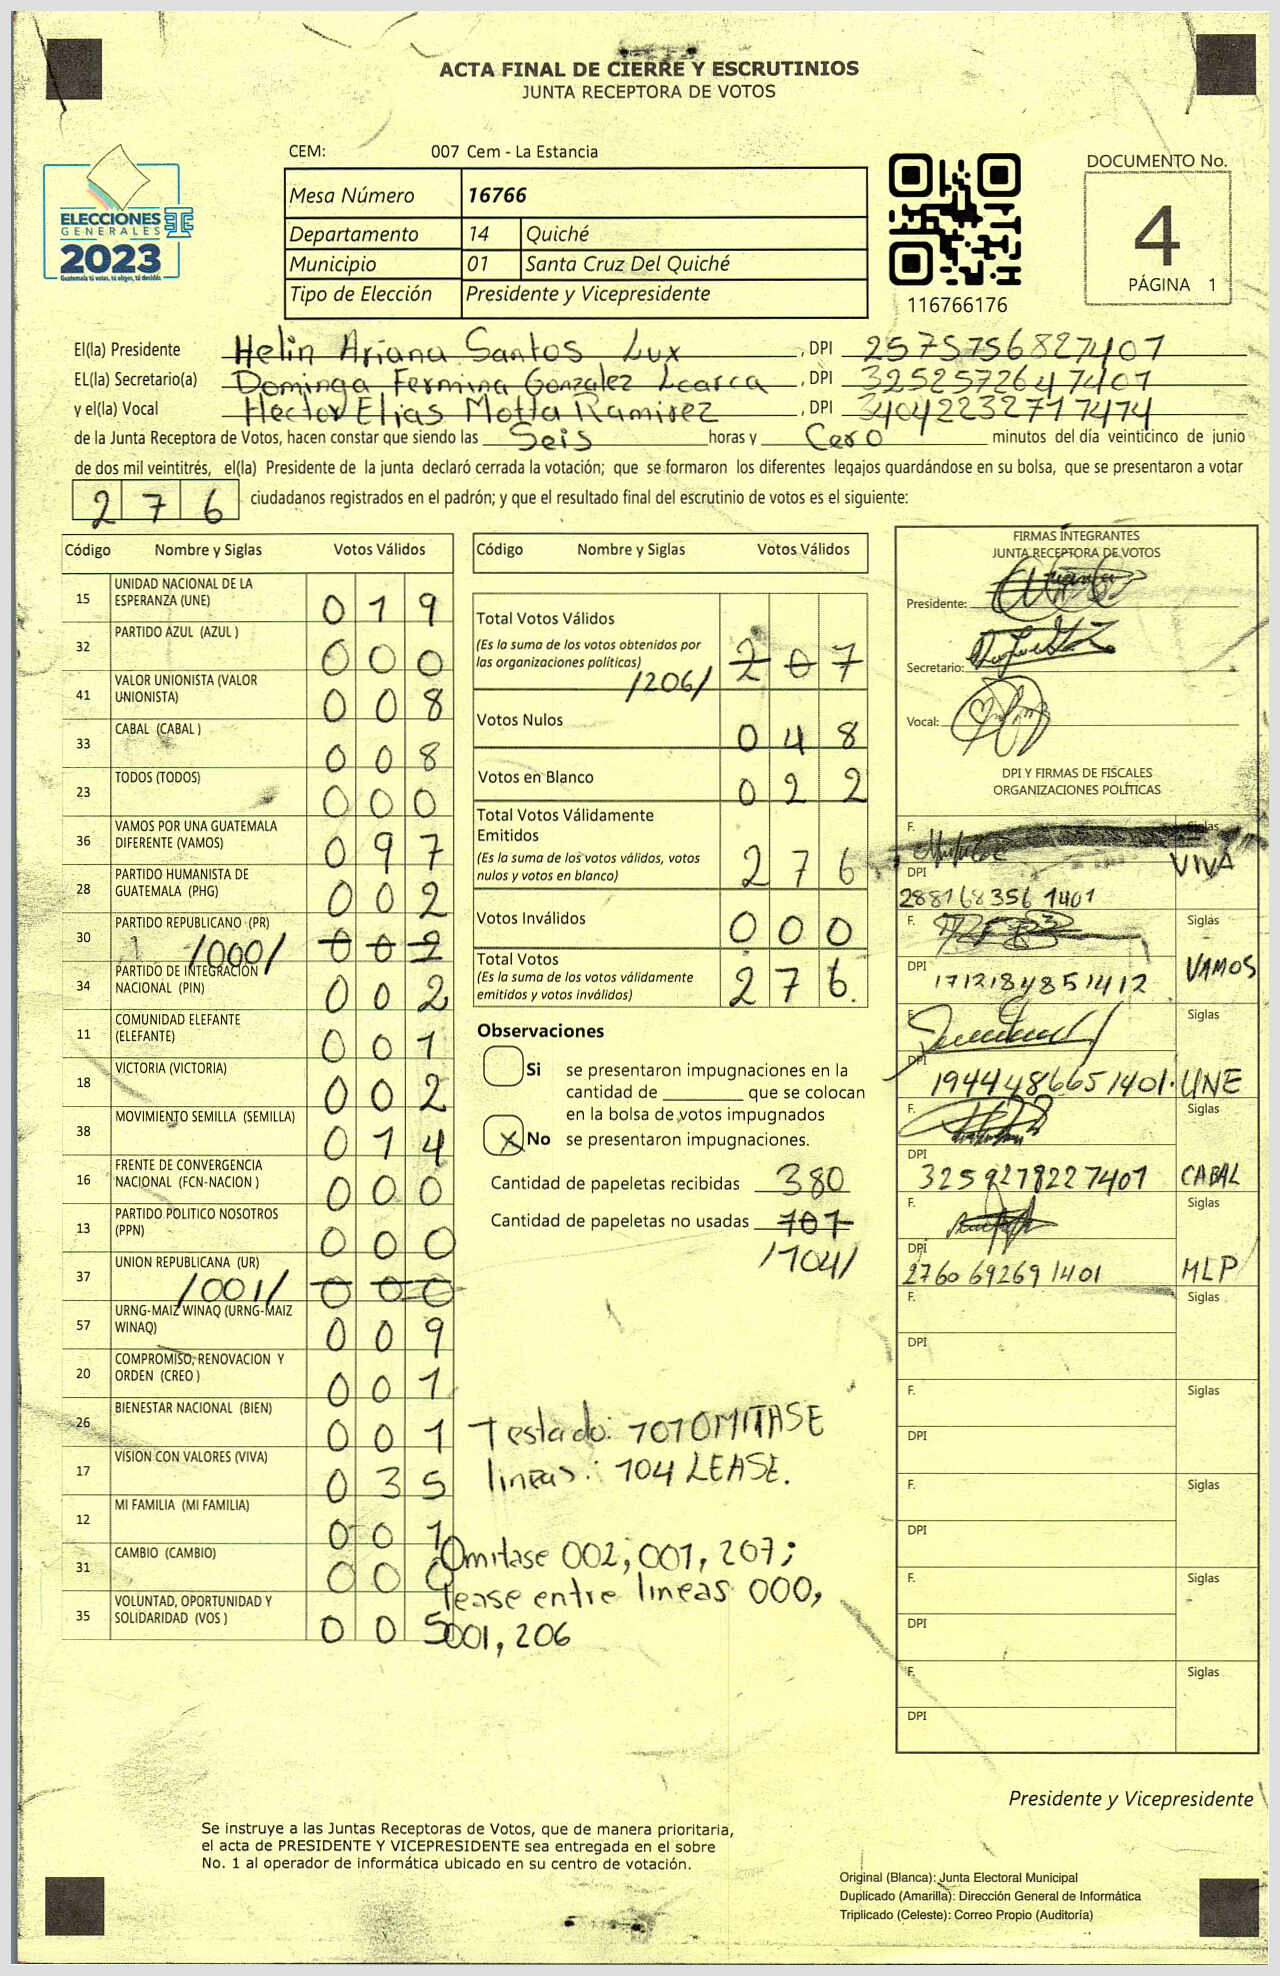 ACTA FINAL DE CIERRE Y ESCRUTINIOS
JUNTA RECEPTORA DE VOTOS
CEM: 007 Cem - La Estancia
Mesa Número 16766
Departamento 14 Quiché
Municipio 01 Santa Cruz Del Quiché
Tipo de Elección Presidente y Vicepresidente
ELECCIONES
GENERALES
2023
Guatemala tú votas, tú eliges, tú decides
116766176
DOCUMENTO No.
4
PÁGINA 1
El(la) Presidente Helin Ariana Santos Lux, DPI 2575756827401
EL(la) Secretario(a) Dominga Fermina Gonzalez Lcarca, DPI 3252572647401
y el(la) Vocal Héctor Elias Motta Ramirez, DPI 3404223271 7474
de la Junta Receptora de Votos, hacen constar que siendo las Seis horas y Cero minutos del día veinticinco de junio
de dos mil veintitrés, el(la) Presidente de la junta declaró cerrada la votación; que se formaron los diferentes legajos quardándose en su bolsa, que se presentaron a votar
276 ciudadanos registrados en el padrón; y que el resultado final del escrutinio de votos es el siguiente:
Código Nombre y Siglas Votos Válidos
15 UNIDAD NACIONAL DE LA ESPERANZA (UNE) 019
32 PARTIDO AZUL (AZUL ) 000
41 VALOR UNIONISTA (VALOR UNIONISTA) 008
33 CABAL (CABAL ) 008
23 TODOS (TODOS) 000
36 VAMOS POR UNA GUATEMALA DIFERENTE (VAMOS) 097
28 PARTIDO HUMANISTA DE GUATEMALA (PHG) 002
30 PARTIDO REPUBLICANO (PR) /000/ 002
34 PARTIDO DE INTEGRACIÓN NACIONAL (PIN) 002
11 COMUNIDAD ELEFANTE (ELEFANTE) 001
18 VICTORIA (VICTORIA) 002
38 MOVIMIENTO SEMILLA (SEMILLA) 014
16 FRENTE DE CONVERGENCIA NACIONAL (FCN-NACION ) 000
13 PARTIDO POLITICO NOSOTROS (PPN) 000
37 UNION REPUBLICANA (UR) /001/ 000
57 URNG-MAIZ WINAQ (URNG-MAIZ WINAQ) 009
20 COMPROMISO, RENOVACION Y ORDEN (CREO ) 001
26 BIENESTAR NACIONAL (BIEN) 001
17 VISION CON VALORES (VIVA) 035
12 MI FAMILIA (MI FAMILIA) 001
31 CAMBIO (CAMBIO) 000
35 VOLUNTAD, OPORTUNIDAD Y SOLIDARIDAD (VOS ) 005
Código Nombre y Siglas Votos Válidos
Total Votos Válidos
(Es la suma de los votos obtenidos por
las organizaciones políticas) 207
/206/
Votos Nulos 048
Votos en Blanco 022
Total Votos Válidamente
Emitidos
(Es la suma de los votos válidos, votos
nulos y votos en blanco) 276
Votos Inválidos 000
Total Votos
(Es la suma de los votos válidamente
emitidos y votos inválidos) 276.
Observaciones
Si se presentaron impugnaciones en la
cantidad de ________ que se colocan
en la bolsa de votos impugnados
X No se presentaron impugnaciones.
Cantidad de papeletas recibidas 380
Cantidad de papeletas no usadas 107
/104/
Testado: 107 OMITASE
lineas: 104 LEASE.
Omitase 002, 001, 207;
lease entre lineas 000,
001, 206
FIRMAS INTEGRANTES
JUNTA RECEPTORA DE VOTOS
Presidente:
Secretario:
Vocal:
DPI Y FIRMAS DE FISCALES
ORGANIZACIONES POLÍTICAS
F. Siglas
DPI 288168356 1401 VIVA
F. Siglas
DPI 1712184851412 VAMOS
F. Siglas
DPI 1944486651401. UNE
F. Siglas
DPI 3259278227401 CABAL
F. Siglas
DPI 2760 69269 1401 MLP
F. Siglas
DPI
F. Siglas
DPI
F. Siglas
DPI
F. Siglas
DPI
F. Siglas
DPI
Presidente y Vicepresidente
Se instruye a las Juntas Receptoras de Votos, que de manera prioritaria,
el acta de PRESIDENTE Y VICEPRESIDENTE sea entregada en el sobre
No. 1 al operador de informática ubicado en su centro de votación.
Original (Blanca): Junta Electoral Municipal
Duplicado (Amarilla): Dirección General de Informática
Triplicado (Celeste): Correo Propio (Auditoría)